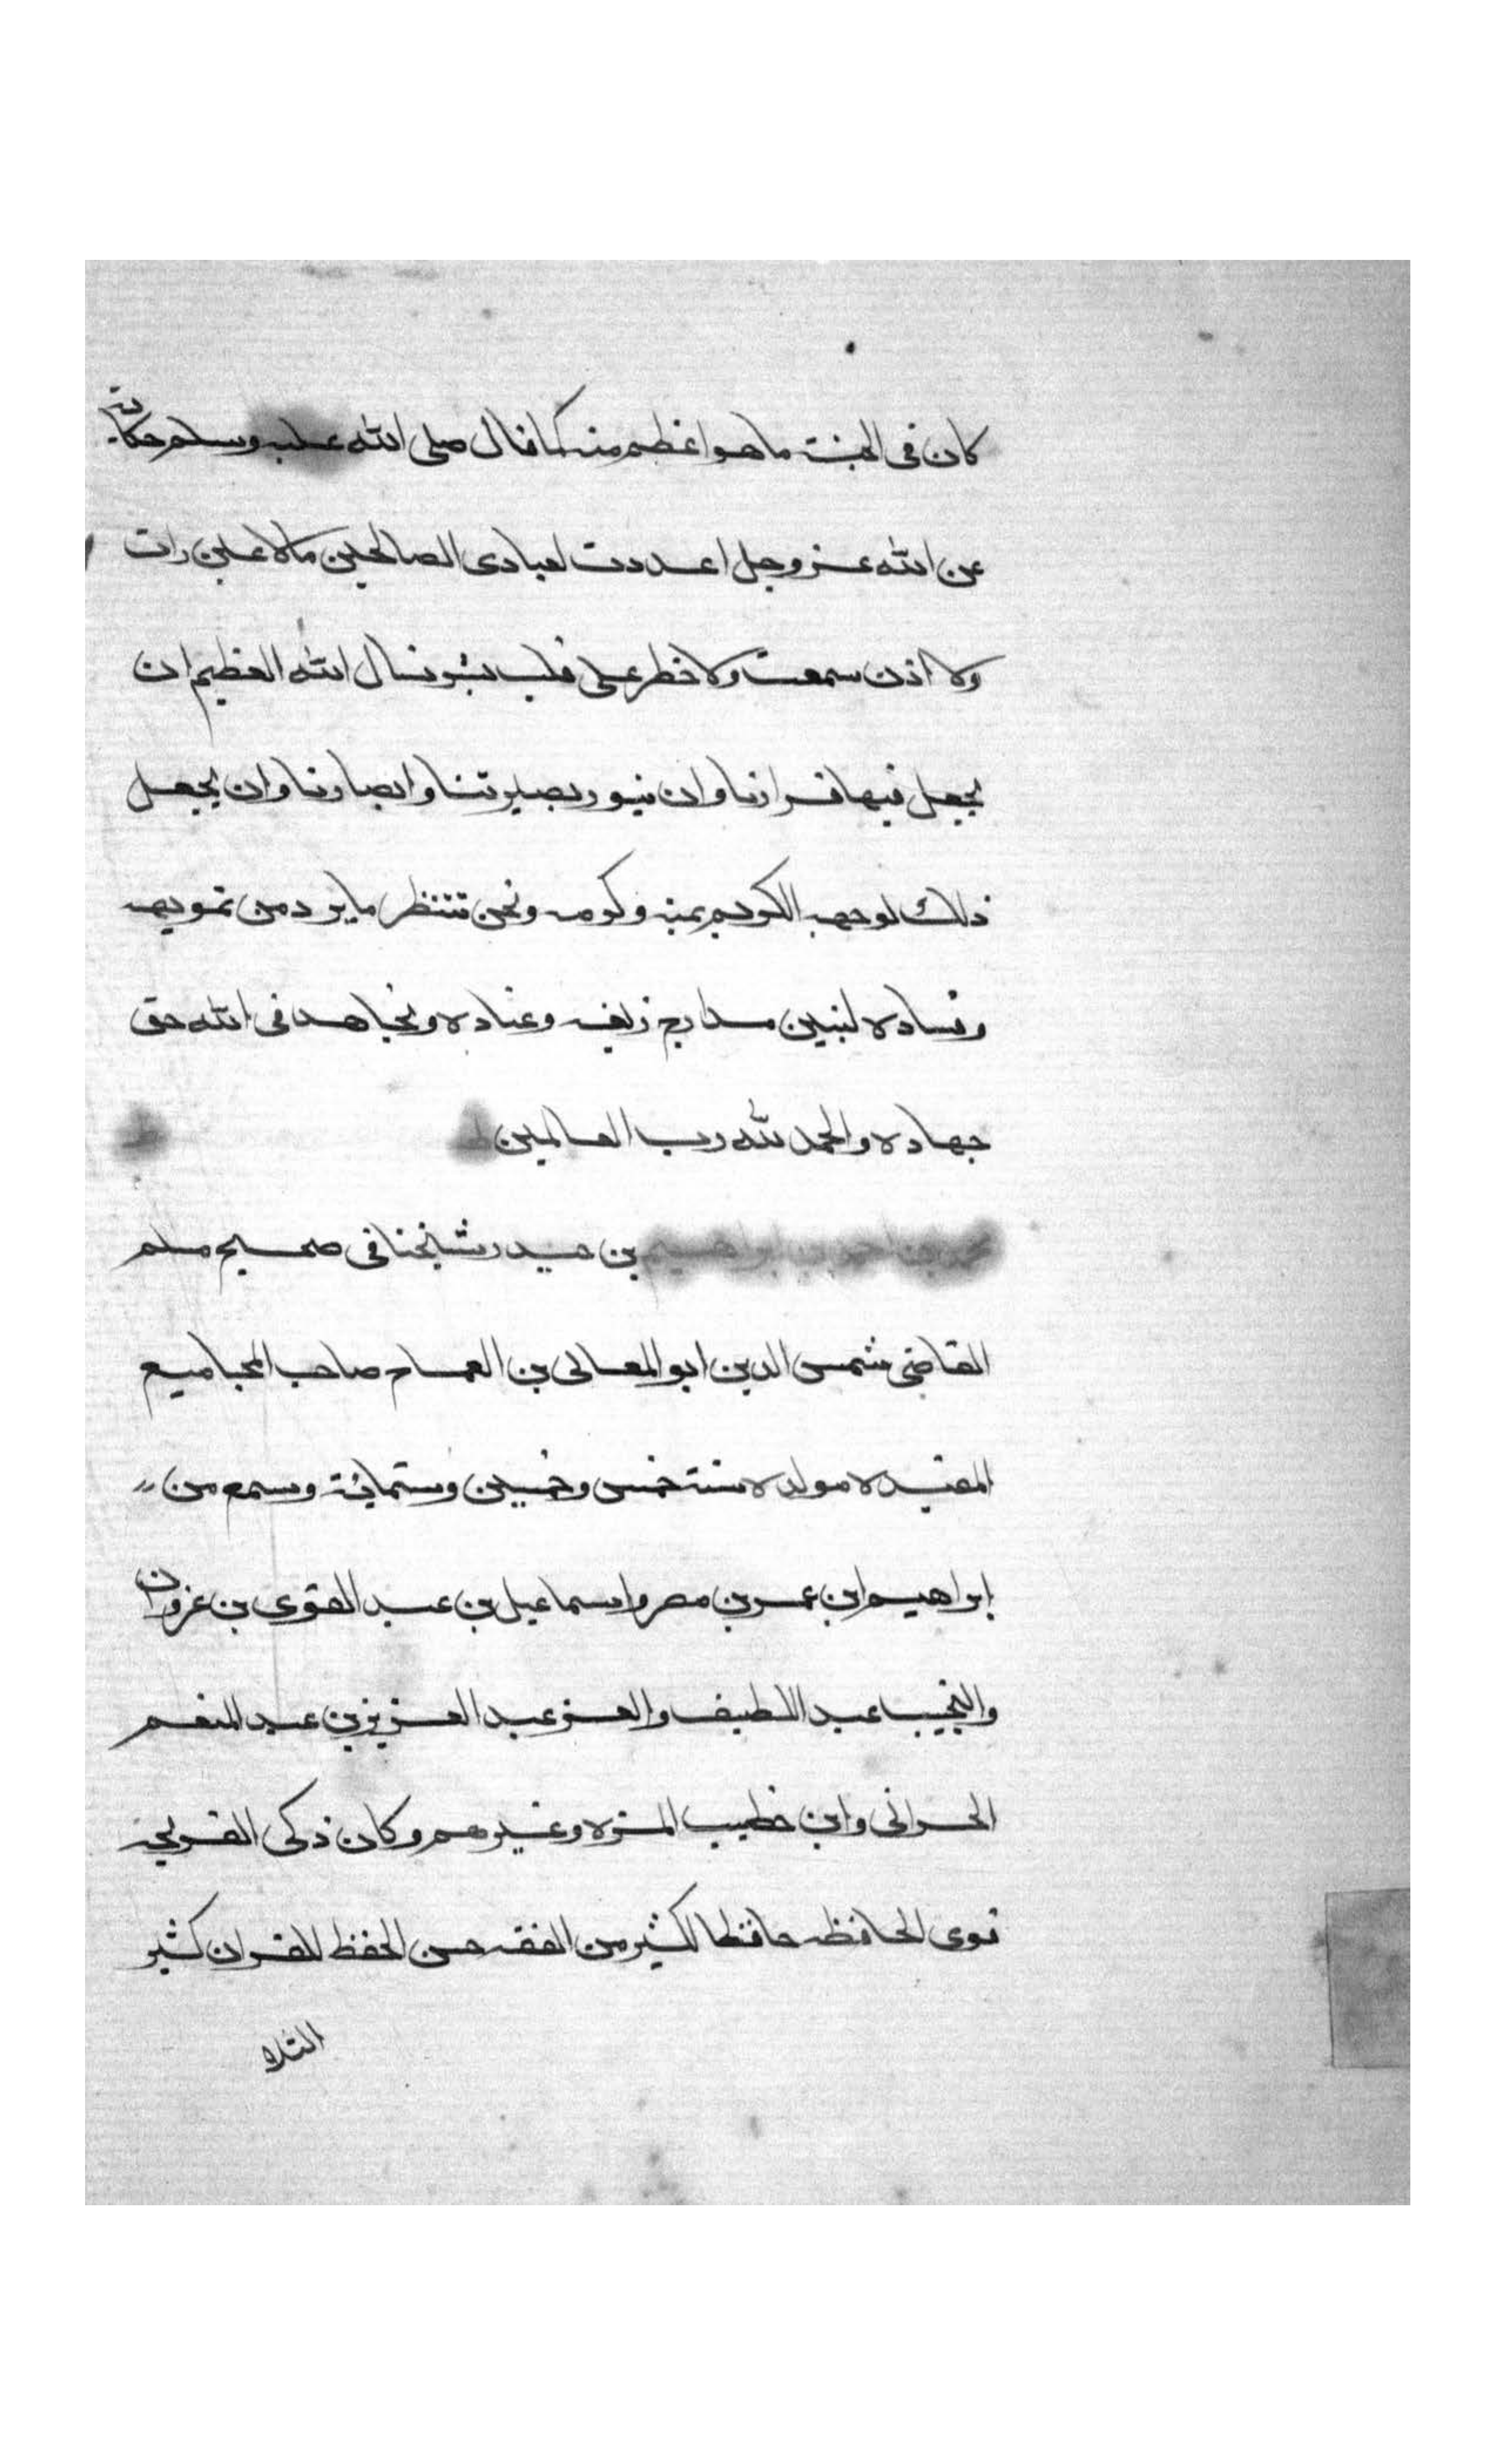 كان فى الجنة ماهو اعظم منه كما قال صلى الله عليه وسلم حكاية
عن الله عز وجل اعددت لعبادى الصالحين مالا عين رات
ولا اذن سمعت ولا خطر على قلب بشر نسال الله العظيم ان
يجعل فيها قرارنا وان ينور بصيرتنا وابصارنا وان يجعل
ذلك لوجهه الكريم بمنه وكرمه ونحن ننتظر ما يرد من تمويهه
وفساده لنبين مدارج زيغه وعناده ونجاهد فى الله حق
جهاده والحمد لله رب العالمين
محمد بن احمد بن ابراهيم بن حيدر شيخنا فى صحيح مسلم
القاضى شمس الدين ابو المعالى بن القماح صاحب المجاميع
المفيده مولده سنة خمس وخمسين وستمائة وسمع من
إبراهيم ابن عمر بن مضر واسماعيل بن عبد القوى بن عزون
والنجيب عبد اللطيف والعز عبد العزيز بن عبد المنعم
الحرانى وابن خطيب المزه وغيرهم وكان ذكى القريحة
قوى الحافظه حافظا لكثير من الفقه حسن الحفظ للقران كثير
التلاو